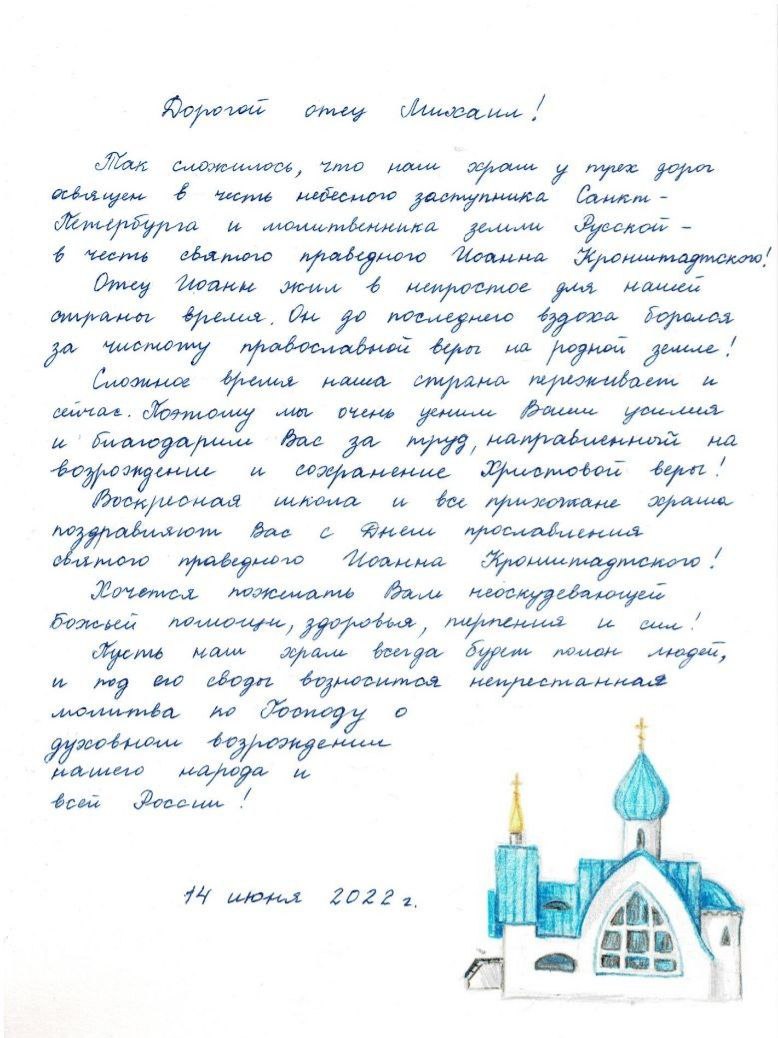 Дорогой отец Михаил!
Так сложилось, что наш храм у трех дорог
освящен в честь небесного заступника Санкт-
Петербурга и молитвенника земли Русской -
в честь святого праведного Иоанна Кронштадтского!
Отец Иоанн жил в непростое для нашей
страны время. Он до последнего вздоха боролся
за чистоту православной веры на родной земле!
Сложное время наша страна переживает и
сейчас. Поэтому мы очень ценим Ваши усилия
и благодарим Вас за труд, направленный на
возрождение и сохранение Христовой веры!
Воскресная школа и все прихожане храма
поздравляют Вас с Днем прославления
святого праведного Иоанна Кронштадтского!
Хочется пожелать Вам неоскудевающей
Божьей помощи, здоровья, терпения и сил!
Пусть наш храм всегда будет полон людей,
и под его своды возносится непрестанная
молитва ко Господу о
духовном возрождении
нашего народа и
всей России!
14 июня 2022 г.